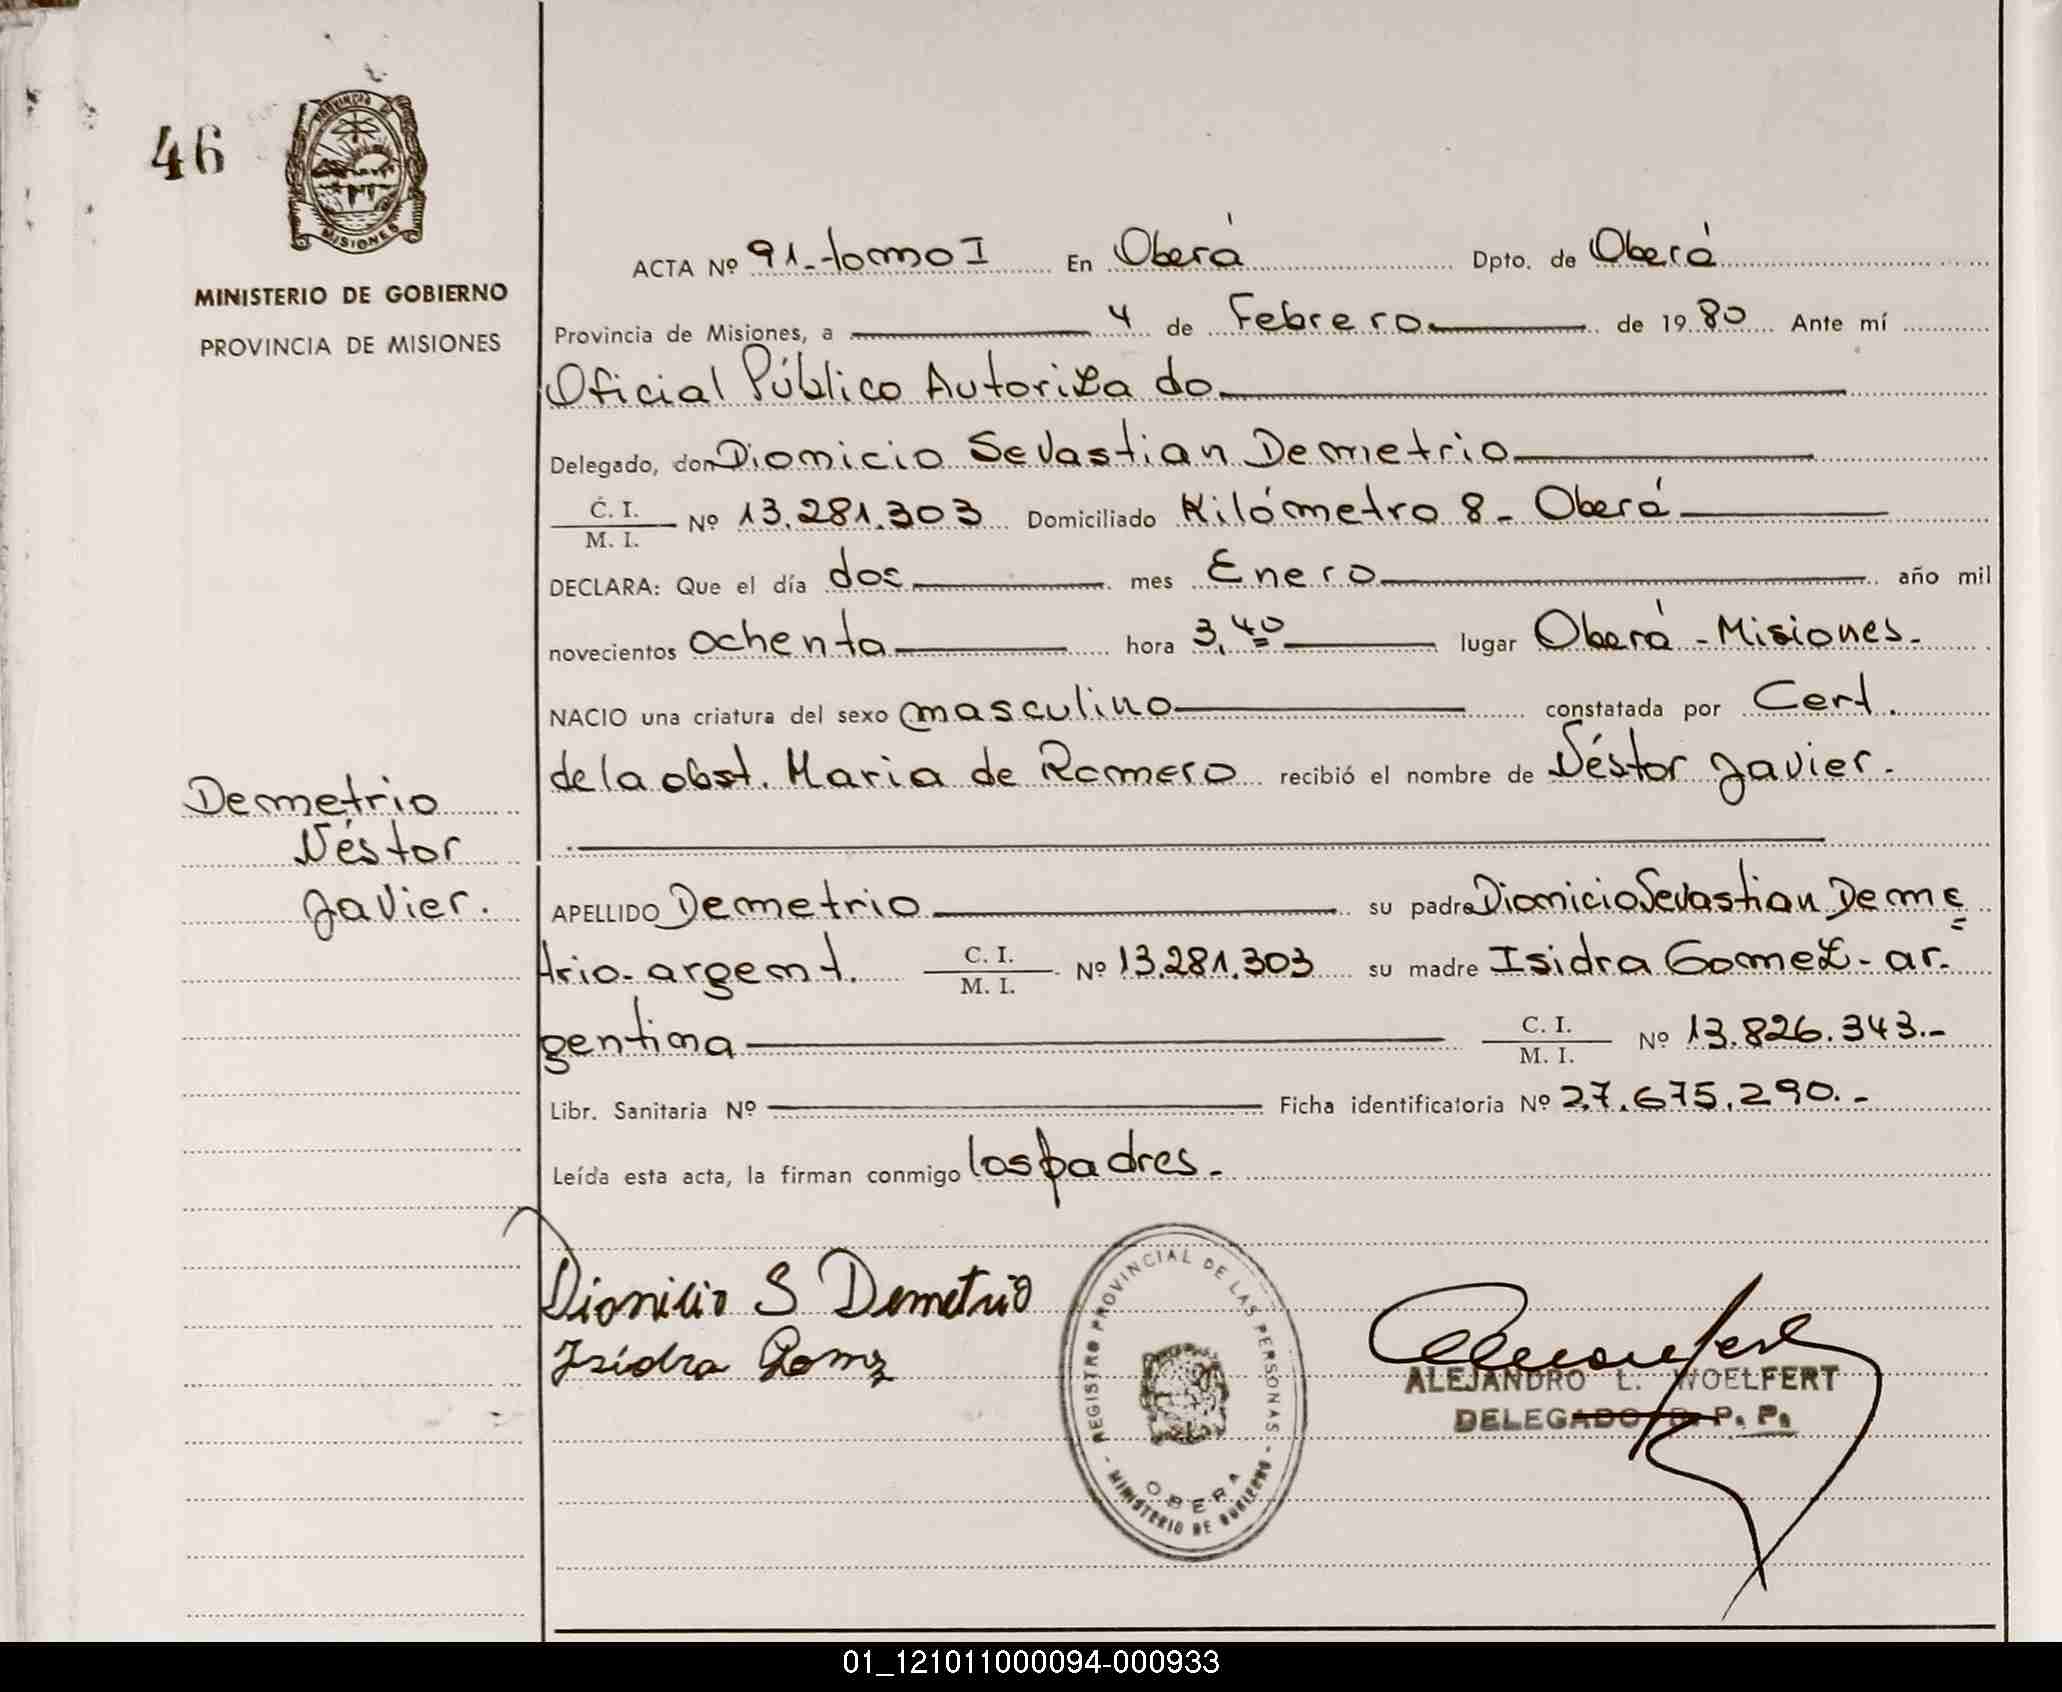 46
PROVINCIA DE
MISIONES
MINISTERIO DE GOBIERNO
PROVINCIA DE MISIONES
ACTA Nº 91-tomo I En Oberá Dpto. de Oberá
Provincia de Misiones, a 4 de Febrero de 1980 Ante mí
Oficial Público Autorizado
Delegado, don Dionicio Sevastian Demetrio
C. I. / M. I. Nº 13.281.303 Domiciliado Kilómetro 8 - Oberá
DECLARA: Que el día dos mes Enero año mil
novecientos ochenta hora 3,40 lugar Oberá - Misiones-
NACIO una criatura del sexo masculino constatada por Cert.
de la obst. Maria de Romero recibió el nombre de Néstor Javier.
Demetrio
Néstor
Javier.
APELLIDO Demetrio su padre Dionicio Sevastian Deme
trio-argent. C. I. / M. I. Nº 13.281.303 su madre Isidra Gomez-ar-
gentina C. I. / M. I. Nº 13.826.343.-
Libr. Sanitaria Nº Ficha identificatoria Nº 27.675.290.-
Leída esta acta, la firman conmigo los padres.-
Dionicio S Demetrio
Isidra Gomz
REGISTRO PROVINCIAL DE LAS PERSONAS
OBERA
- MINISTERIO DE GOBIERNO -
ALEJANDRO L. WOELFERT
DELEGADO R. P. P.
01_121011000094-000933